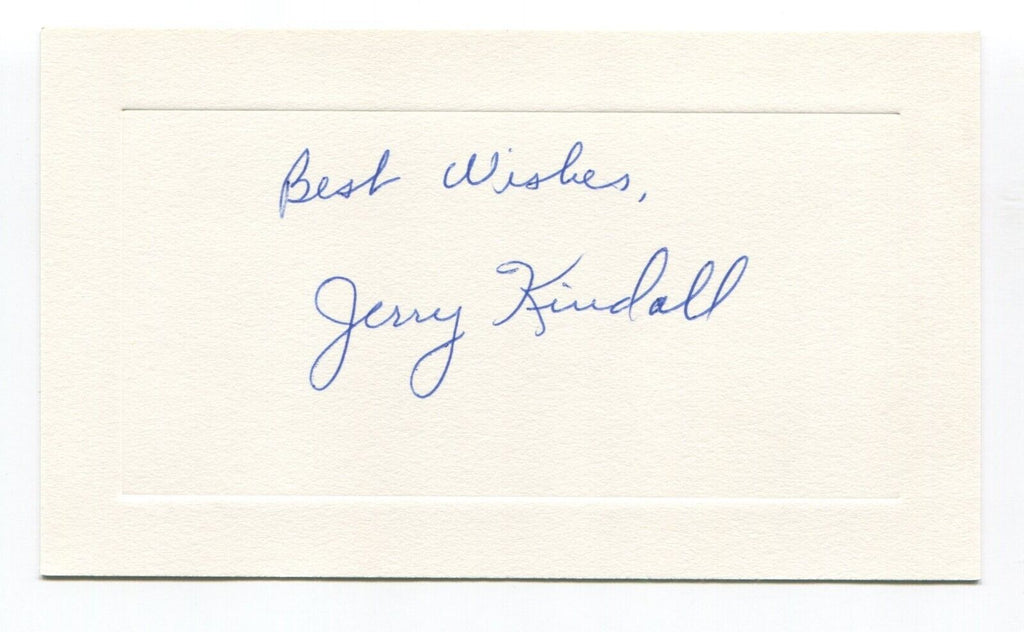 Best Wishes,
Jerry Kindall